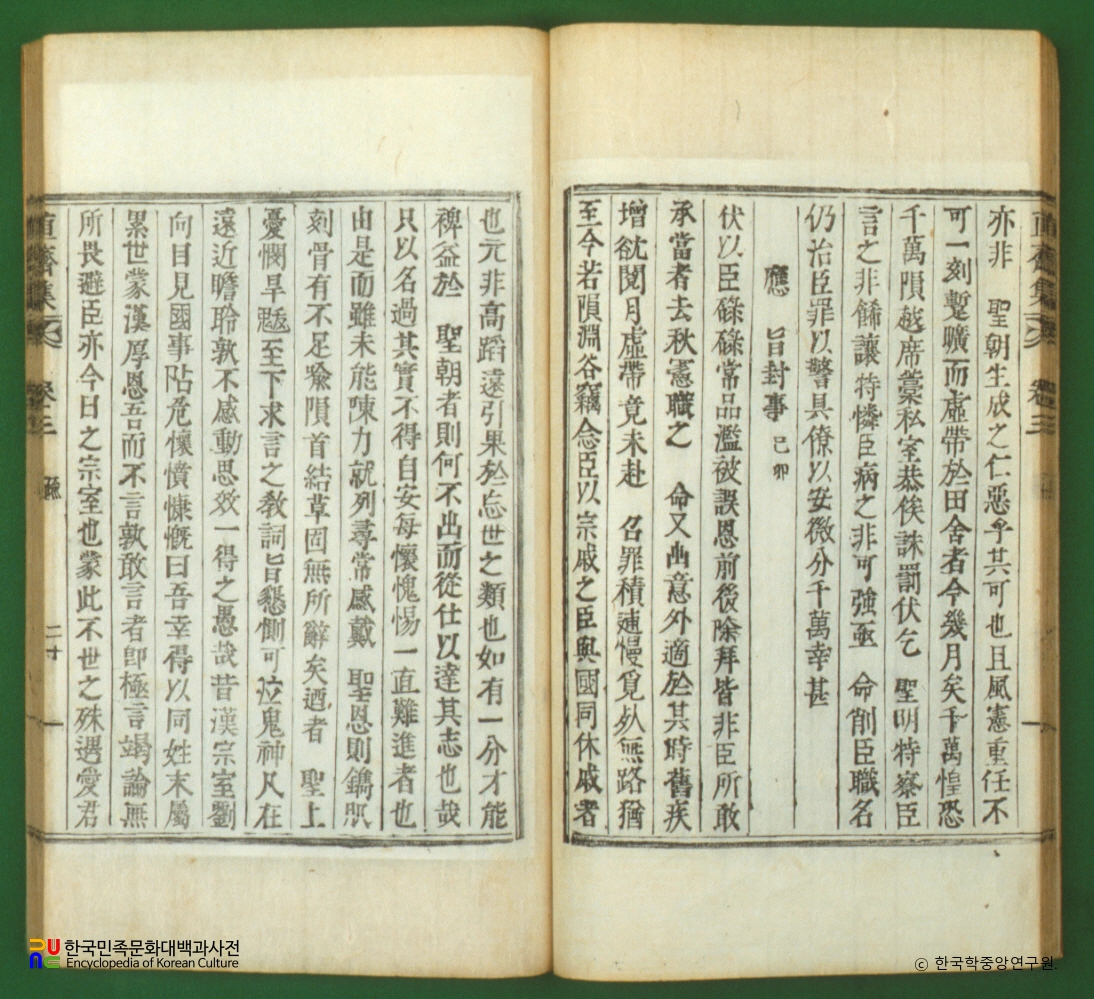 亦非 聖朝生成之仁惡乎其可也且風憲重任不
可一刻蹔曠而虛帶於田舍者今幾月矣千萬惶恐
千萬隕越席藁私室恭俟誅罰伏乞 聖明特察臣
言之非餙讓特憐臣病之非可強亟 命削臣職名
仍治臣罪以警具僚以安微分千萬幸甚
應 旨封事 己卯
伏以臣碌碌常品濫被誤恩前後除拜皆非臣所敢
承當者去秋憲職之 命又出意外適於其時舊疾
增欿閱月虛帶竟未赴 召罪積逋慢覓死無路猶
至今若隕淵谷竊念臣以宗戚之臣與國同休戚者
也元非高蹈遠引果於忘世之類也如有一分才能
裨益於 聖朝者則何不出而從仕以達其志也哉
只以名過其實不得自安每懷愧惕一直難進者也
由是而雖未能陳力就列尋常感戴 聖恩則鐫肌
刻骨有不足喩隕首結草固無所辭矣迺者 聖上
憂憫旱魃至下求言之敎詞旨懇惻可泣鬼神凡在
遠近瞻聆孰不感動思效一得之愚哉昔漢宗室劉
向目見國事阽危懷憤慷慨曰吾幸得以同姓末屬
累世蒙漢厚恩吾而不言孰敢言者卽極言竭論無
所畏避臣亦今日之宗室也蒙此不世之殊遇愛君
直齋集 卷之三 疏 二十一
한국민족문화대백과사전
Encyclopedia of Korean Culture
© 한국학중앙연구원